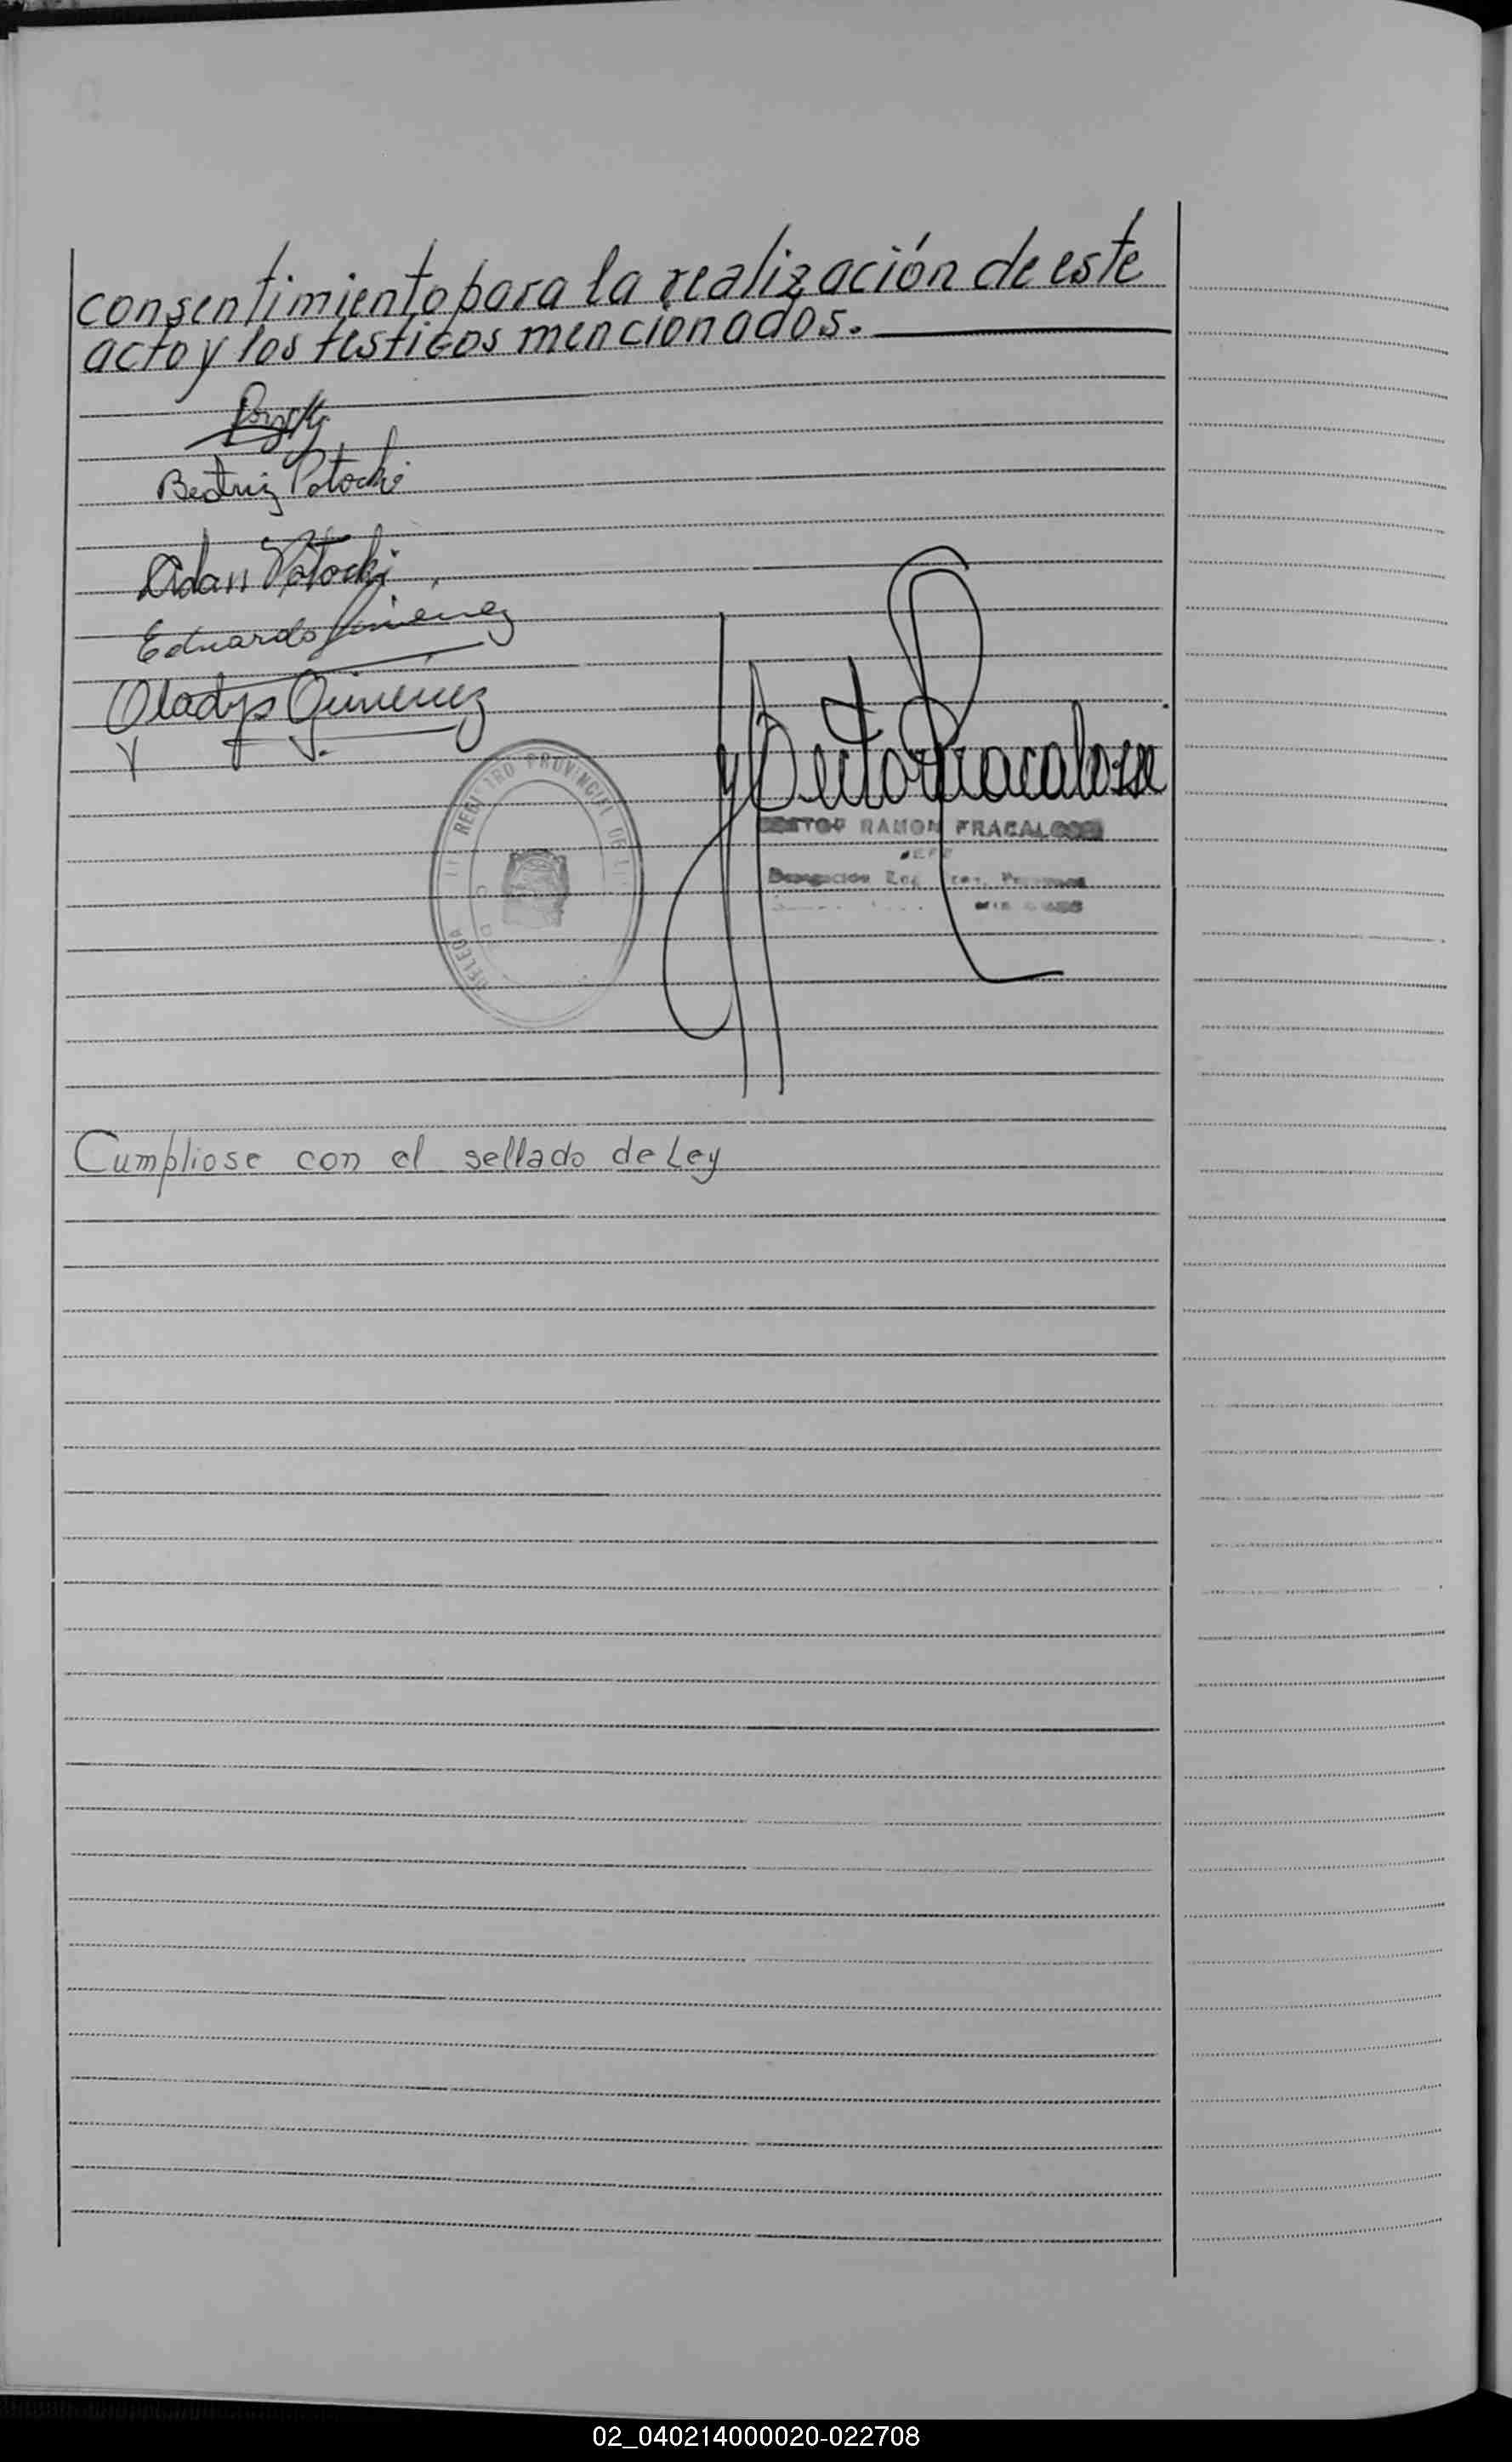 consentimiento para la realización de este
acto y los testigos mencionados.
Beatriz Potocki
Adan Potocki
Eduardo Gimenez
Gladys Gimenez
Hector Fracalossi
REGISTRO PROVINCIAL DE
DELEGA
HECTOR RAMON FRACALOSSI
JEFE
Delegación Reg. Prov. Personas
Cumpliose con el sellado de Ley
02_040214000020-022708